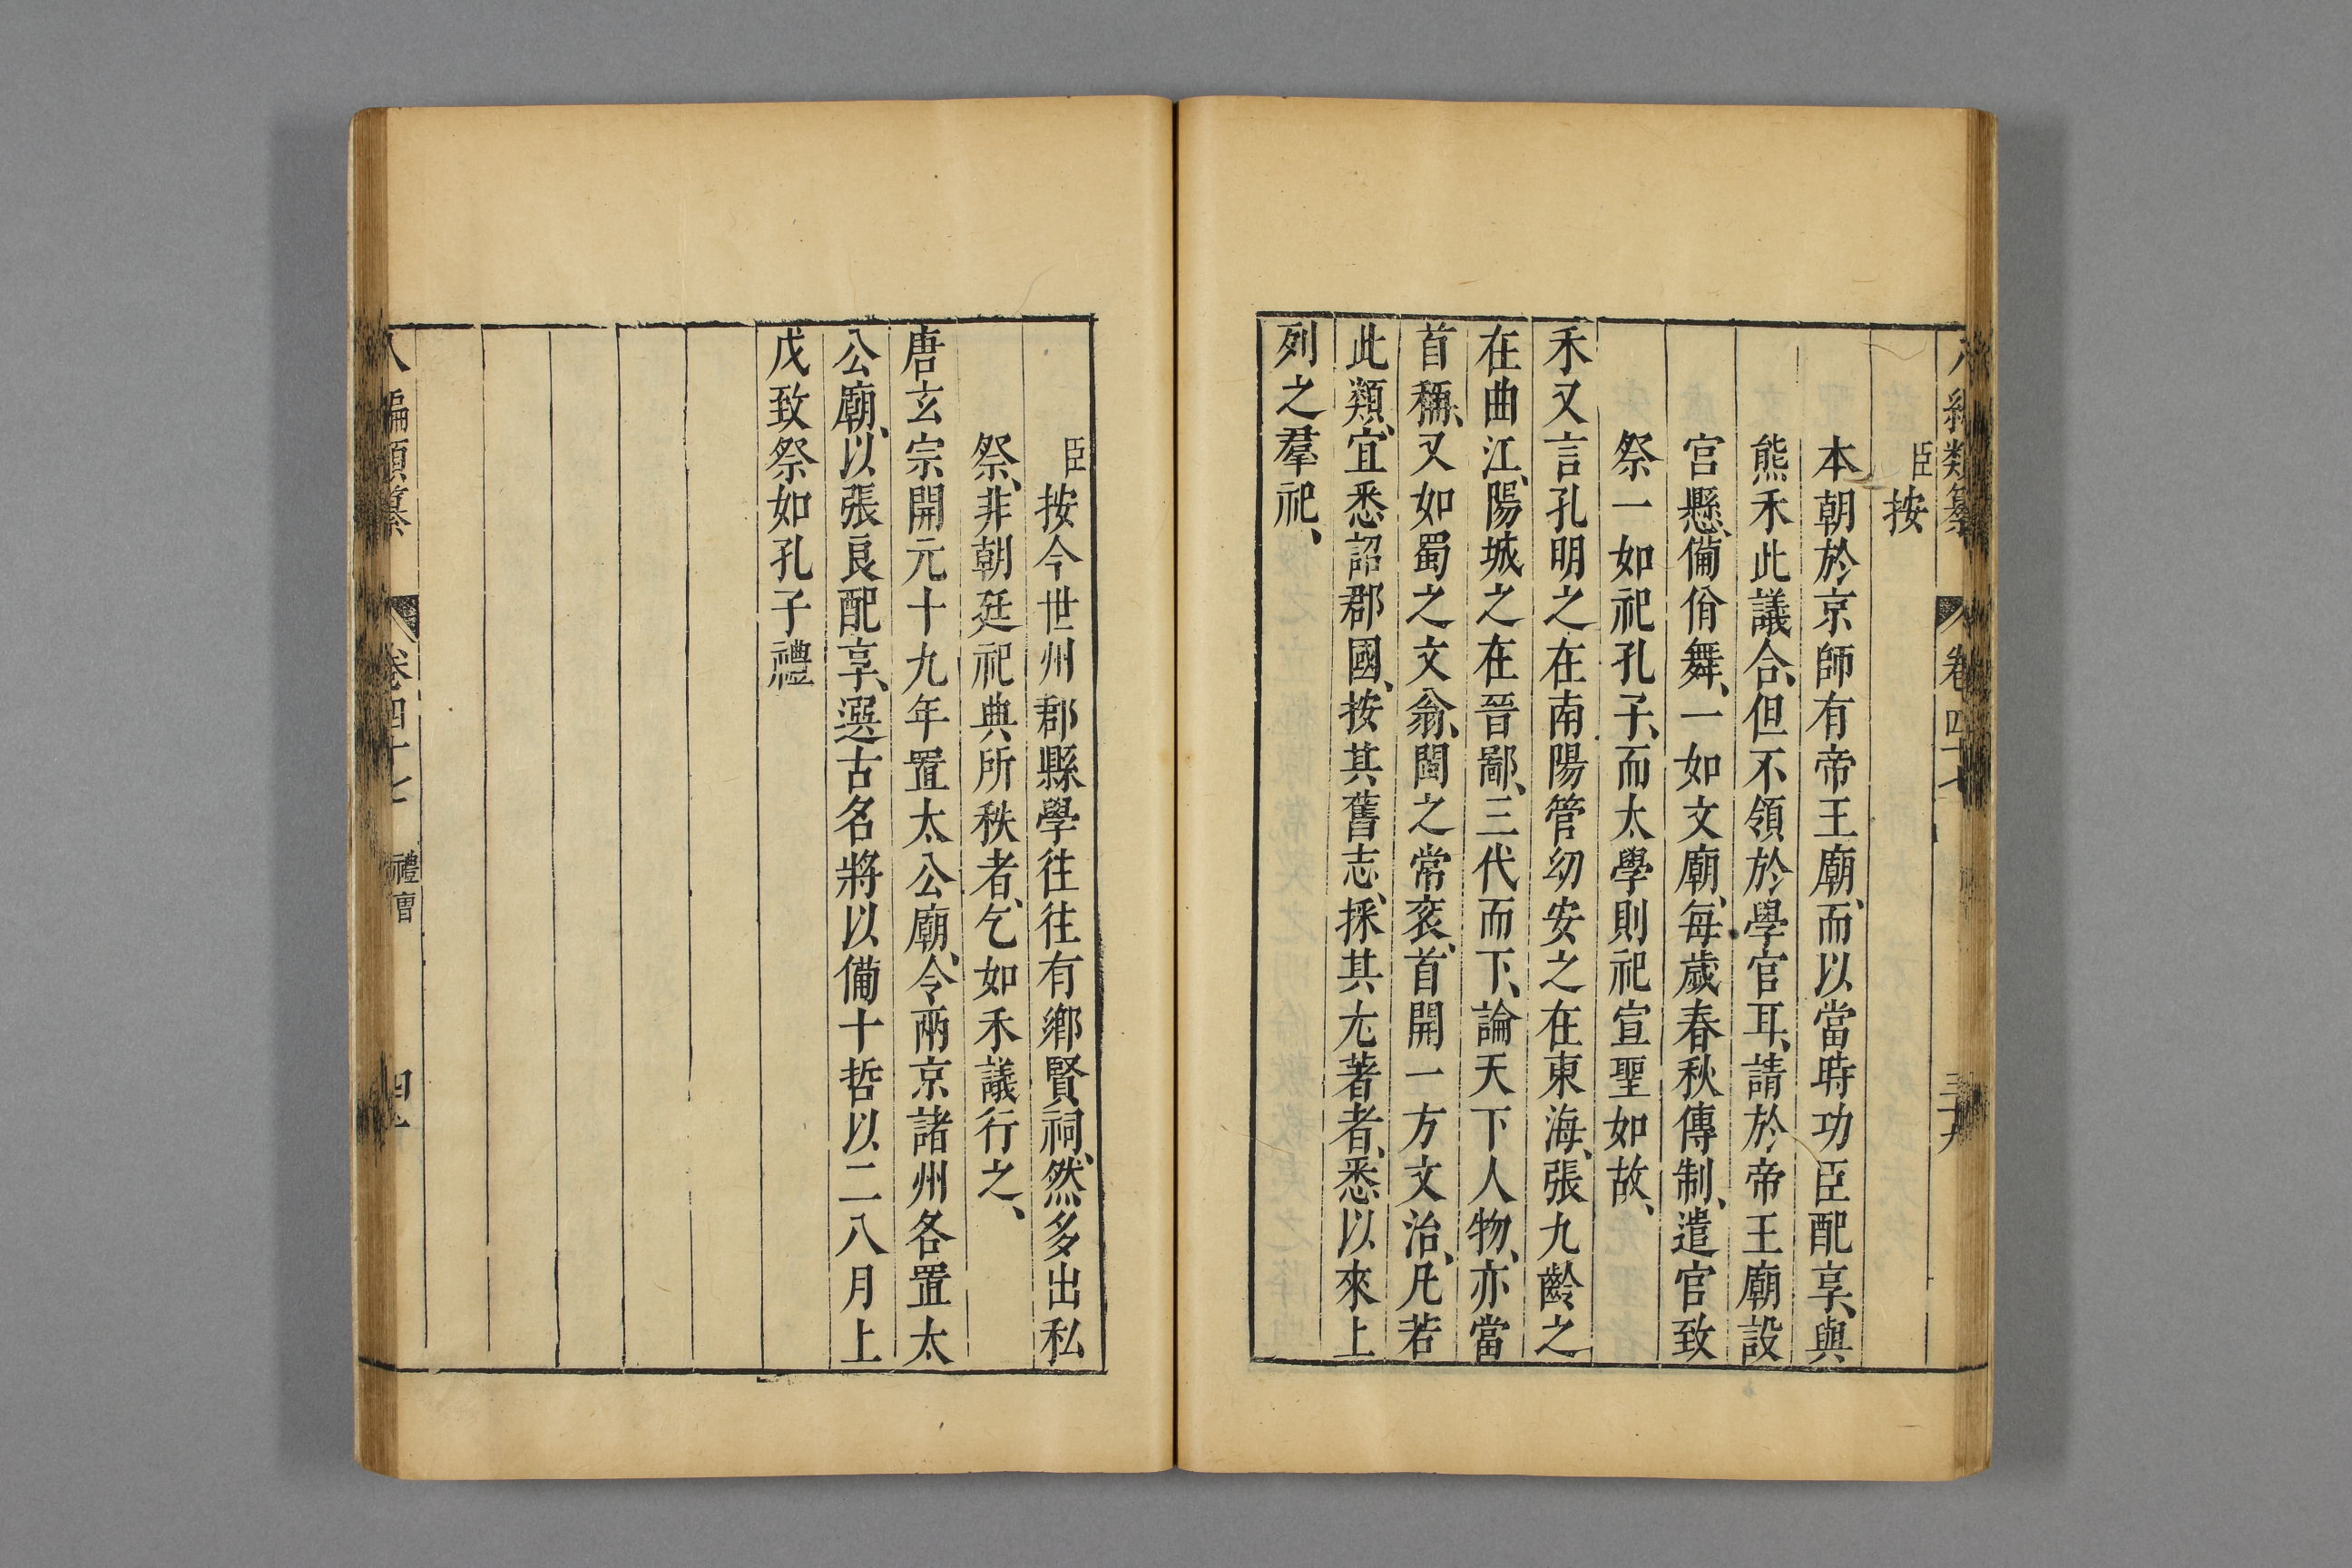 類纂 卷四十七 三十九
臣按
本朝於京師有帝王廟、而以當時功臣配享、與
熊禾此議合、但不領於學官耳、請於帝王廟設
宮縣、備佾舞、一如文廟、每歲春秋傳制、遣官致
祭一如祀孔子、而太學則祀宣聖如故、
禾又言孔明之在南陽管幼安之在東海、張九齡之
在曲江、陽城之在晉鄙、三代而下、論天下人物、亦當
首稱、又如蜀之文翁、閩之常袞、首開一方文治、凡若
此類、宜悉詔郡國、按其舊志、採其尢著者、悉以來上
列之羣祀、
臣按今世州郡縣學往往有鄉賢祠、然多出私
祭、非朝廷祀典所秩者、乞如禾議行之、
唐玄宗開元十九年置太公廟、令兩京諸州各置太
公廟、以張良配享、選古名將以備十哲以二八月上
戊致祭如孔子禮
八編類纂 卷四十七 禮曹 四十